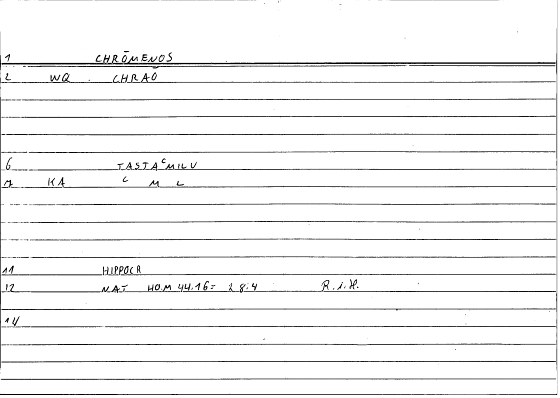 1 CHRŌMENOS
2 WQ . CHRAŌ
6 TASTAᶜMILU
7 KA ᶜ M L
11 HIPPOCR
12 NAT HOM 44.16 = 28:4 R.i.H.
14